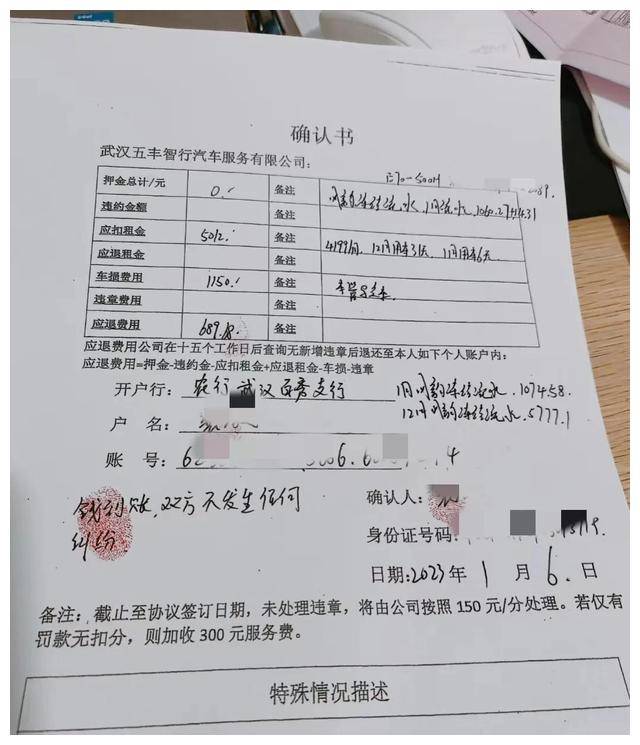 确认书
武汉五丰智行汽车服务有限公司：
押金总计/元 0. 备注
违约金额 备注
应扣租金 5012. 备注 4199/月, 12月用车3天, 1月用车6天
应退租金 备注
车损费用 1150. 备注
违章费用 备注
应退费用 689.18 备注
应退费用公司在十五个工作日后查询无新增违章后退还至本人如下个人账户内：
应退费用=押金-违约金-应扣租金+应退租金-车损-违章
开户行： 农行武汉 支行
1074.58
户 名：
12月 流水.5777.1
账 号： 6
确认人：
钱到账, 双方不发生任何
纠纷
身份证号码：
日期：2023年 1 月 6. 日
备注：截止至协议签订日期，未处理违章，将由公司按照 150 元/分处理。若仅有
罚款无扣分，则加收 300 元服务费。
特殊情况描述